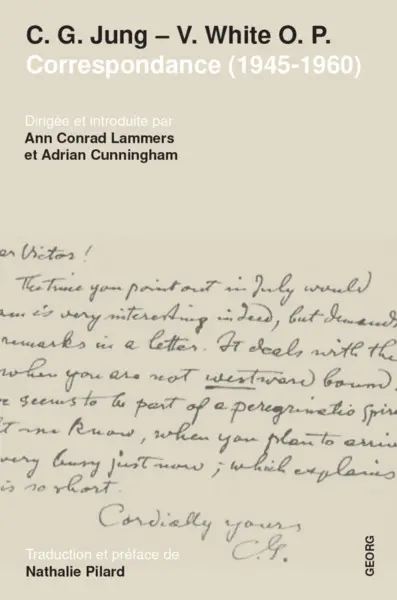 C. G. Jung – V. White O. P.
Correspondance (1945-1960)
Dirigée et introduite par
Ann Conrad Lammers
et Adrian Cunningham
ar Victor!
The time you point out in July would
is very interesting indeed, but demands
remarks in a letter. It deals with the
when you are not westward bound.
seems to be part of a peregrinatio spiri
t me know, when you plan to arrive
very busy just now; which explains
is so short.
Cordially yours
C.G.
Traduction et préface de
Nathalie Pilard
GEORG